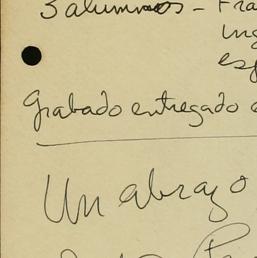 3 alumnos - Fra
ing
esp
Grabado entregado
Un abrazo